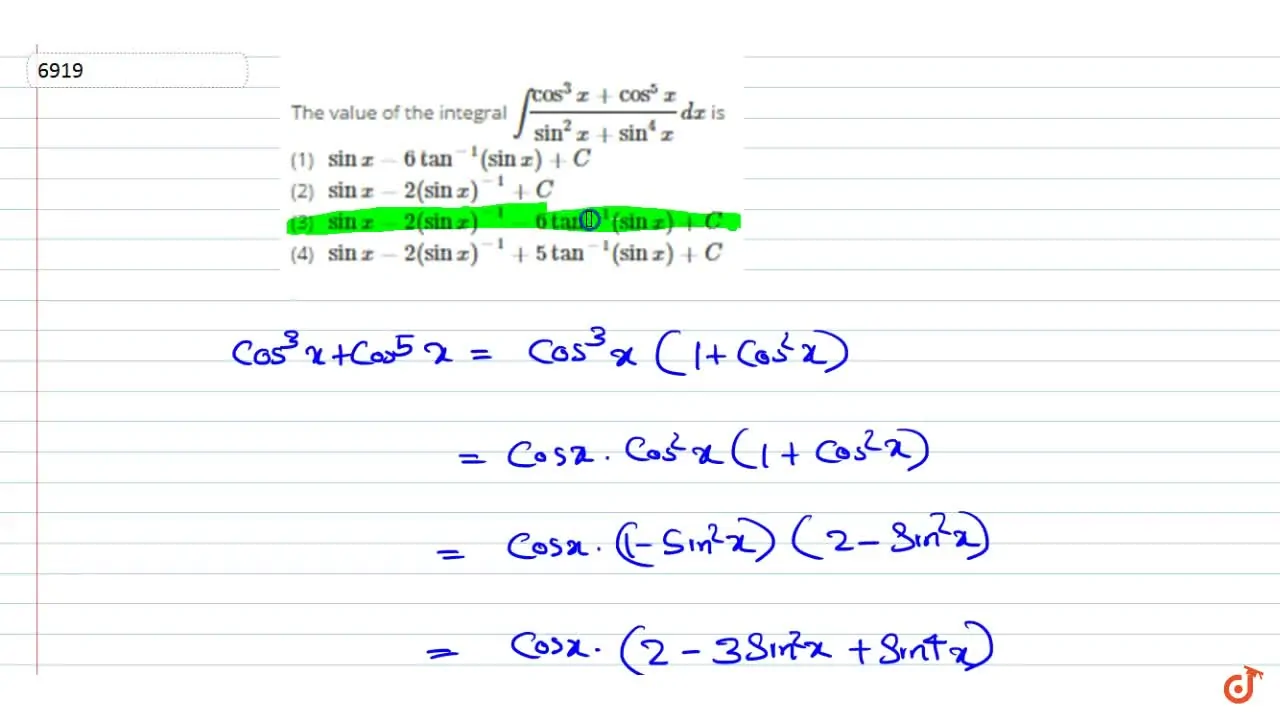 6919
The value of the integral ∫ (cos³ x + cos⁵ x)/(sin² x + sin⁴ x) dx is
(1) sin x − 6 tan⁻¹(sin x) + C
(2) sin x − 2(sin x)⁻¹ + C
(3) sin x − 2(sin x)⁻¹ − 6 tan⁻¹(sin x) + C
(4) sin x − 2(sin x)⁻¹ + 5 tan⁻¹(sin x) + C
Cos³x + Cos⁵x = Cos³x (1 + Cos²x)
= Cosx · Cos²x (1 + Cos²x)
= Cosx · (1 − Sin²x) (2 − Sin²x)
= Cosx · (2 − 3Sin²x + Sin⁴x)